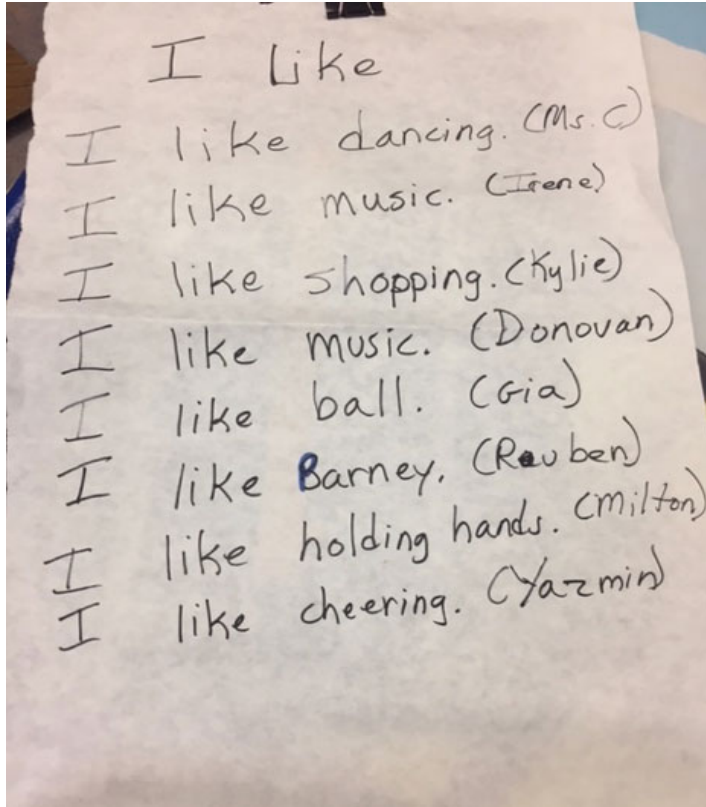 I Like
I like dancing. (Ms. C)
I like music. (Irene)
I like shopping. (Kylie)
I like music. (Donovan)
I like ball. (Gia)
I like Barney. (Reuben)
I like holding hands. (Milton)
I like cheering. (Yazmin)